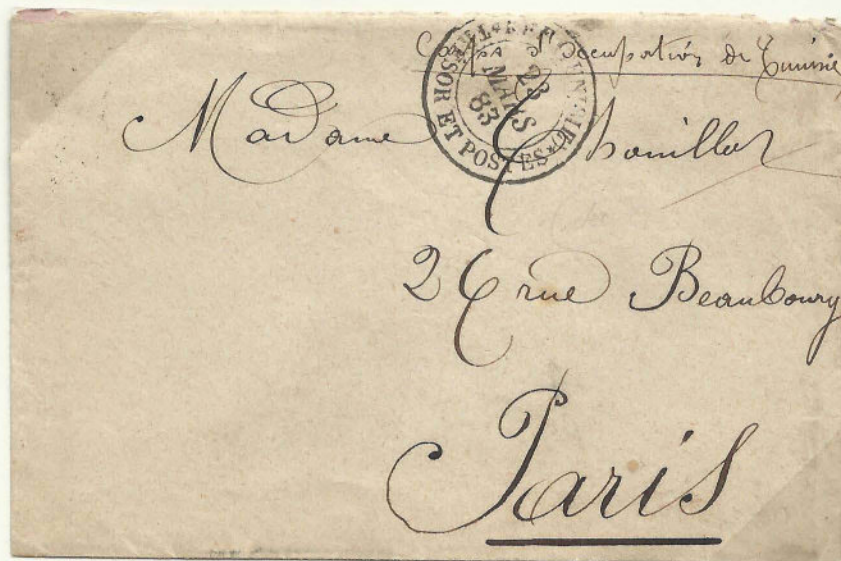 occupation de Tunisie
TRESOR ET POSTES
23
MARS
83
Madame
rue Beaubourg
Paris